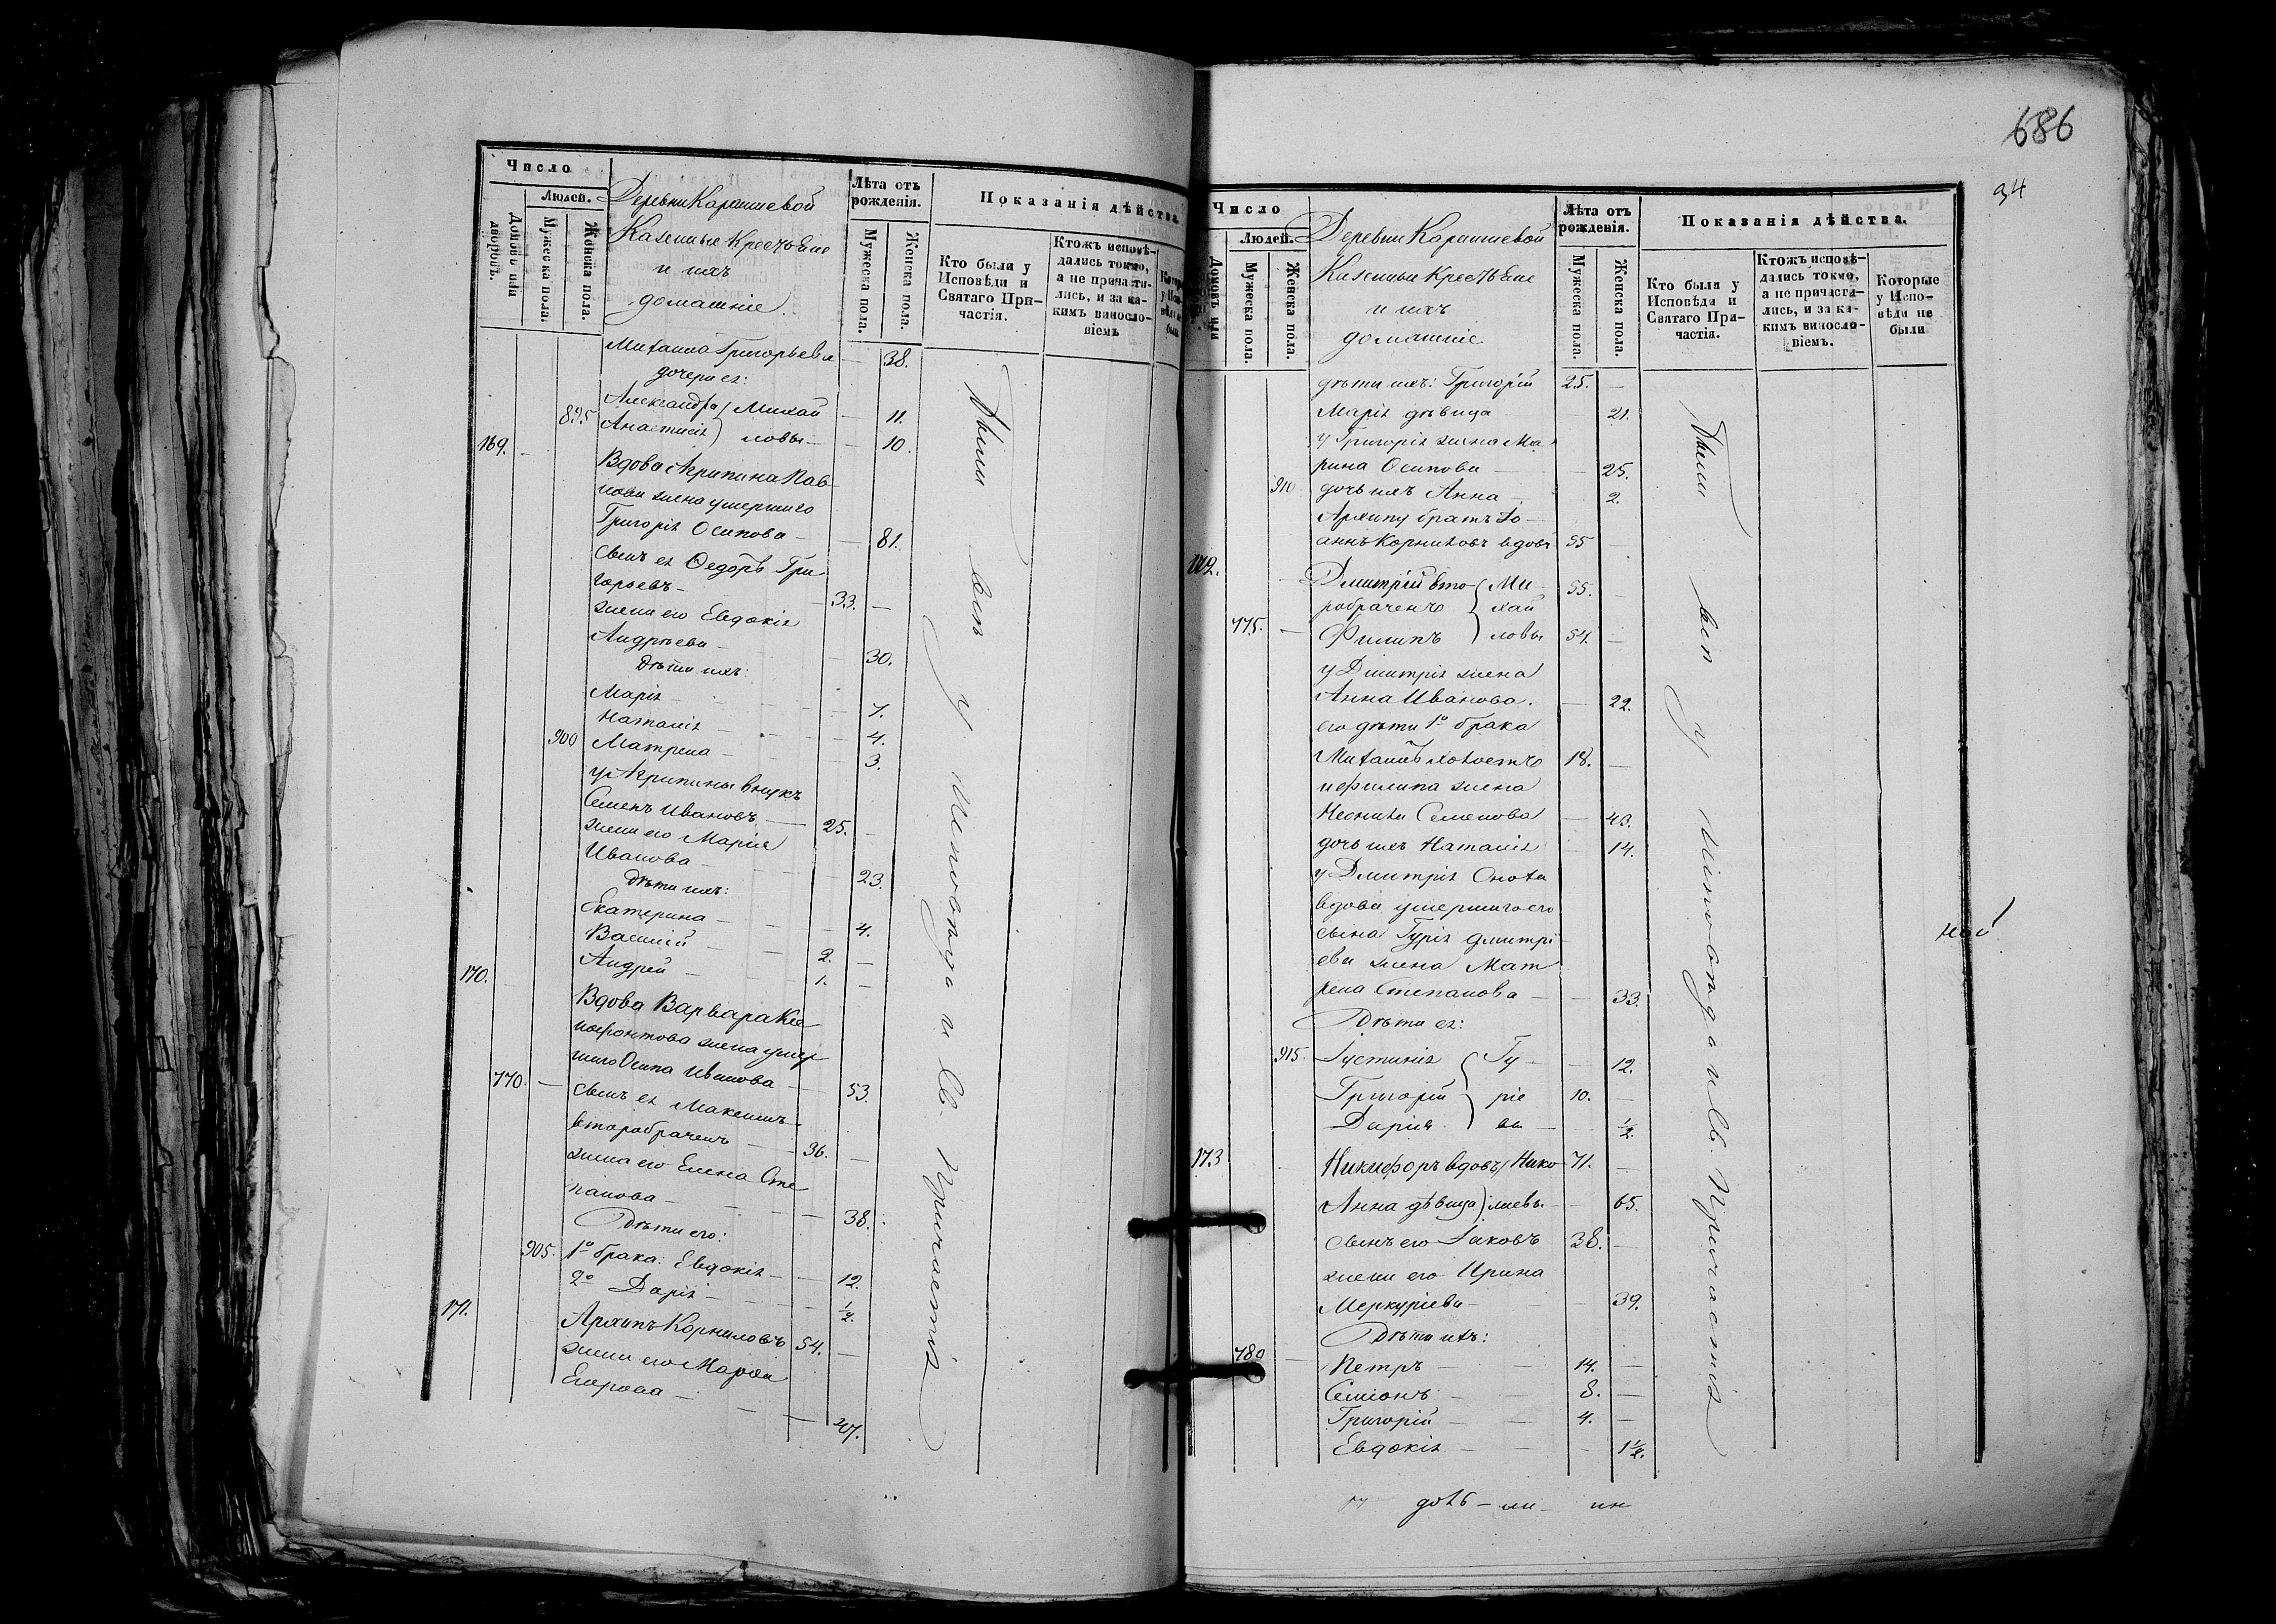 Число
Людей.
Домовъ или дворовъ.
Мужеска пола.
Женска пола.
Деревни Карашиевой
Казенные Крестьяне
и ихъ
домашніе.
Лѣта отъ рожденія.
Мужеска пола.
Женска пола.
Показанія дѣйства.
Кто были у Исповѣди и Святаго Причастія.
Ктожъ исповѣдались токмо, а не причастились, и за какимъ винословіемъ
38.
дочери ея:
895 Александра } Михай 11.
Анастасія } ловы 10.
169. Вдова Агрипина Пав
лова жена умершаго
Григорія Осипова 81.
сынъ ея Ѳедоръ Гри
горьевъ 33.
жена его Евдокія
Андреева 30.
дѣти ихъ:
Марія 7.
Наталія 4.
900 Матрена 3.
у Агрипины внукъ
Семенъ Ивановъ 25.
жена его Марія
Иванова 23.
дѣти ихъ:
Екатерина 4.
Василій 2.
Андрей 1.
170. Вдова Варвара Ксе
нофонтова жена умер
шаго Осипа Иванова 53.
770. сынъ ея Максимъ
второбраченъ 36.
жена его Елена Сте
панова 38.
Дѣти его:
905. 1º брака: Евдокія 12.
2º Дарія 1/2.
171. Архипъ Корниловъ 54.
жена его Марѳа
Егорова 47.
Были вси у Исповѣди и Св. Причастія
686
94
Число
Людей.
Домовъ или
Мужеска пола.
Женска пола.
Деревни Карашиевой
Казенные Крестьяне
и ихъ
домашніе.
Лѣта отъ рожденія.
Мужеска пола.
Женска пола.
Показанія дѣйства.
Кто были у Исповѣди и Святаго Причастія.
Ктожъ исповѣдались токмо, а не причастились, и за какимъ винословіемъ.
Которые у Исповѣди не были
дѣти ихъ: Григорій 25.
Марія дѣвица 21.
у Григорія жена Ма
рина Осипова 25.
910 дочь ихъ Анна 2.
Архипу братъ Іо
аннъ Корниловъ вдовъ 55
172. Дмитрій вто { Ми 55.
рабраченъ } хай
775. Филипъ } ловы 54.
у Дмитрія жена
Анна Иванова. 22.
его дѣти 1º брака
Михаилъ холостъ 18.
Семенова 43.
дочь ихъ Наталія 14.
у Дмитрія Сноха
вдова умершаго его
сына Гурія Дмитрі
ева жена Мат
рена Степанова 33.
Дѣти ея:
915. Іустинія { Гу 12.
Григорій } ріе 10.
Дарія } вы 1/2.
173 Никифоръ вдовъ } Нико 71.
Анна дѣвица } лаевы 65.
сынъ его Іаковъ 38.
жена его Ирина
Меркуріева 39.
Дѣти ихъ:
780 Петръ 14.
Симіонъ 8.
Григорій 4.
Евдокія 1 1/2.
Были вси у Исповѣди и Св. Причастія